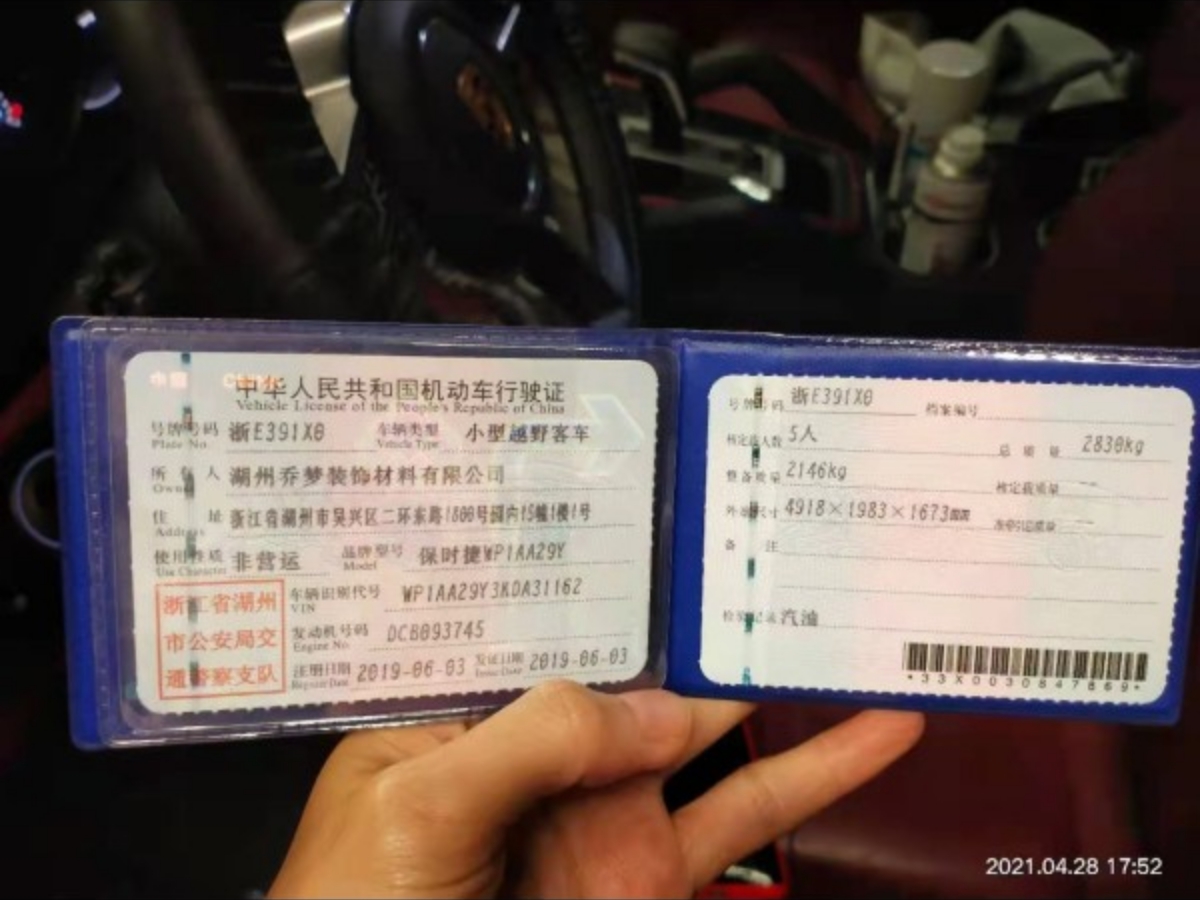 中国 CHINA
中华人民共和国机动车行驶证
Vehicle License of the People's Republic of China
号牌号码 浙E391X0 车辆类型 小型越野客车
Plate No. Vehicle Type
所有人 湖州乔梦装饰材料有限公司
Owner
住址 浙江省湖州市吴兴区二环东路1800号园内15幢1楼1号
Address
使用性质 非营运 品牌型号 保时捷WP1AA29Y
Use Character Model
浙江省湖州
市公安局交
通警察支队
车辆识别代号 WP1AA29Y3KDA31162
VIN
发动机号码 DCB093745
Engine No.
注册日期 2019-06-03 发证日期 2019-06-03
Register Date Issue Date
号牌号码 浙E391X0 档案编号
核定载人数 5人 总质量 2830kg
整备质量 2146kg 核定载质量 --
外廓尺寸 4918×1983×1673 准牵引总质量 --
备注
检验记录 汽油
*33X0030847869*
2021.04.28 17:52